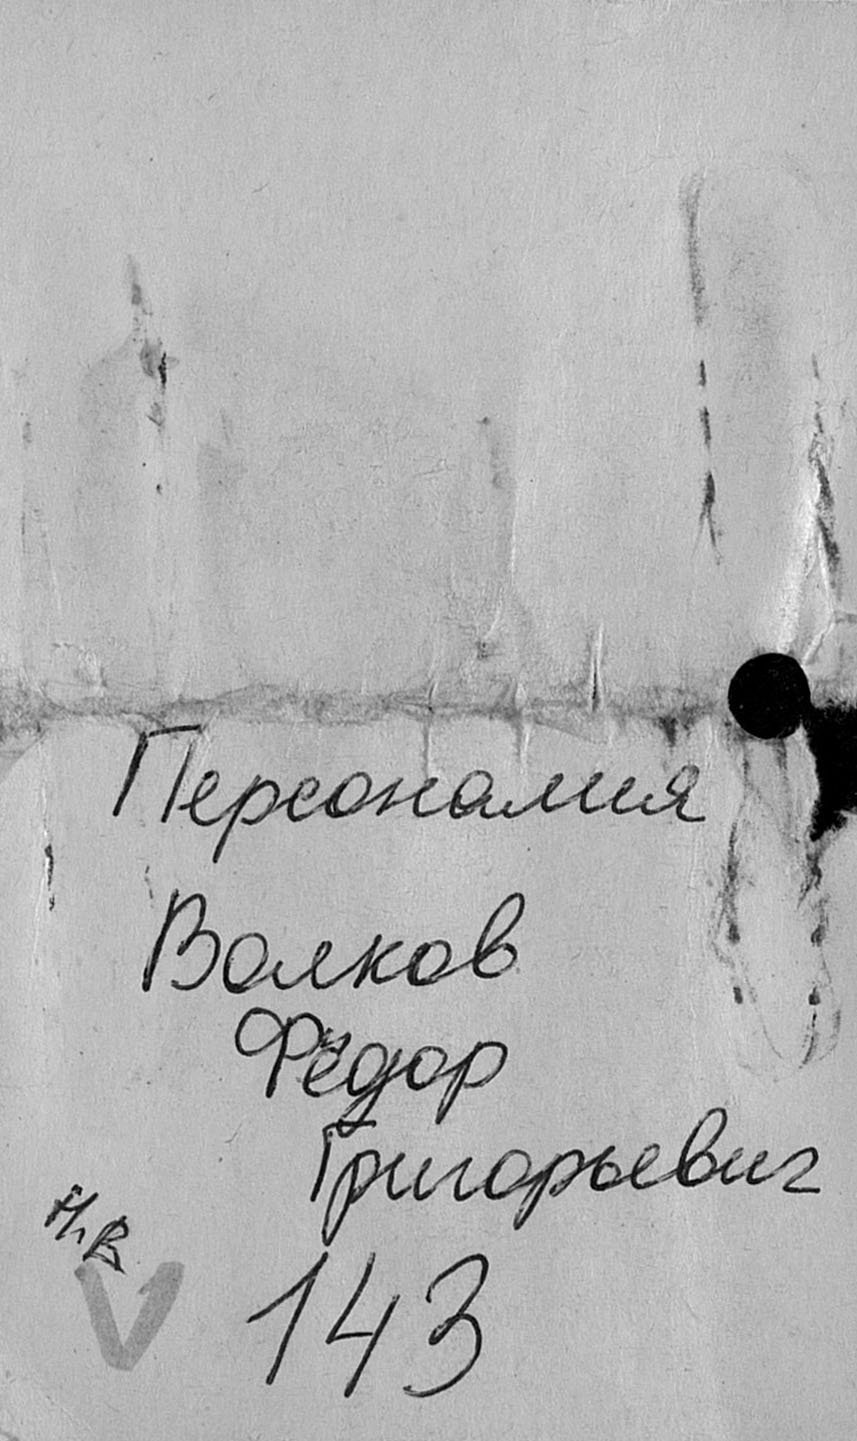 Персоналия
Волков
Фёдор
Григорьевич
143